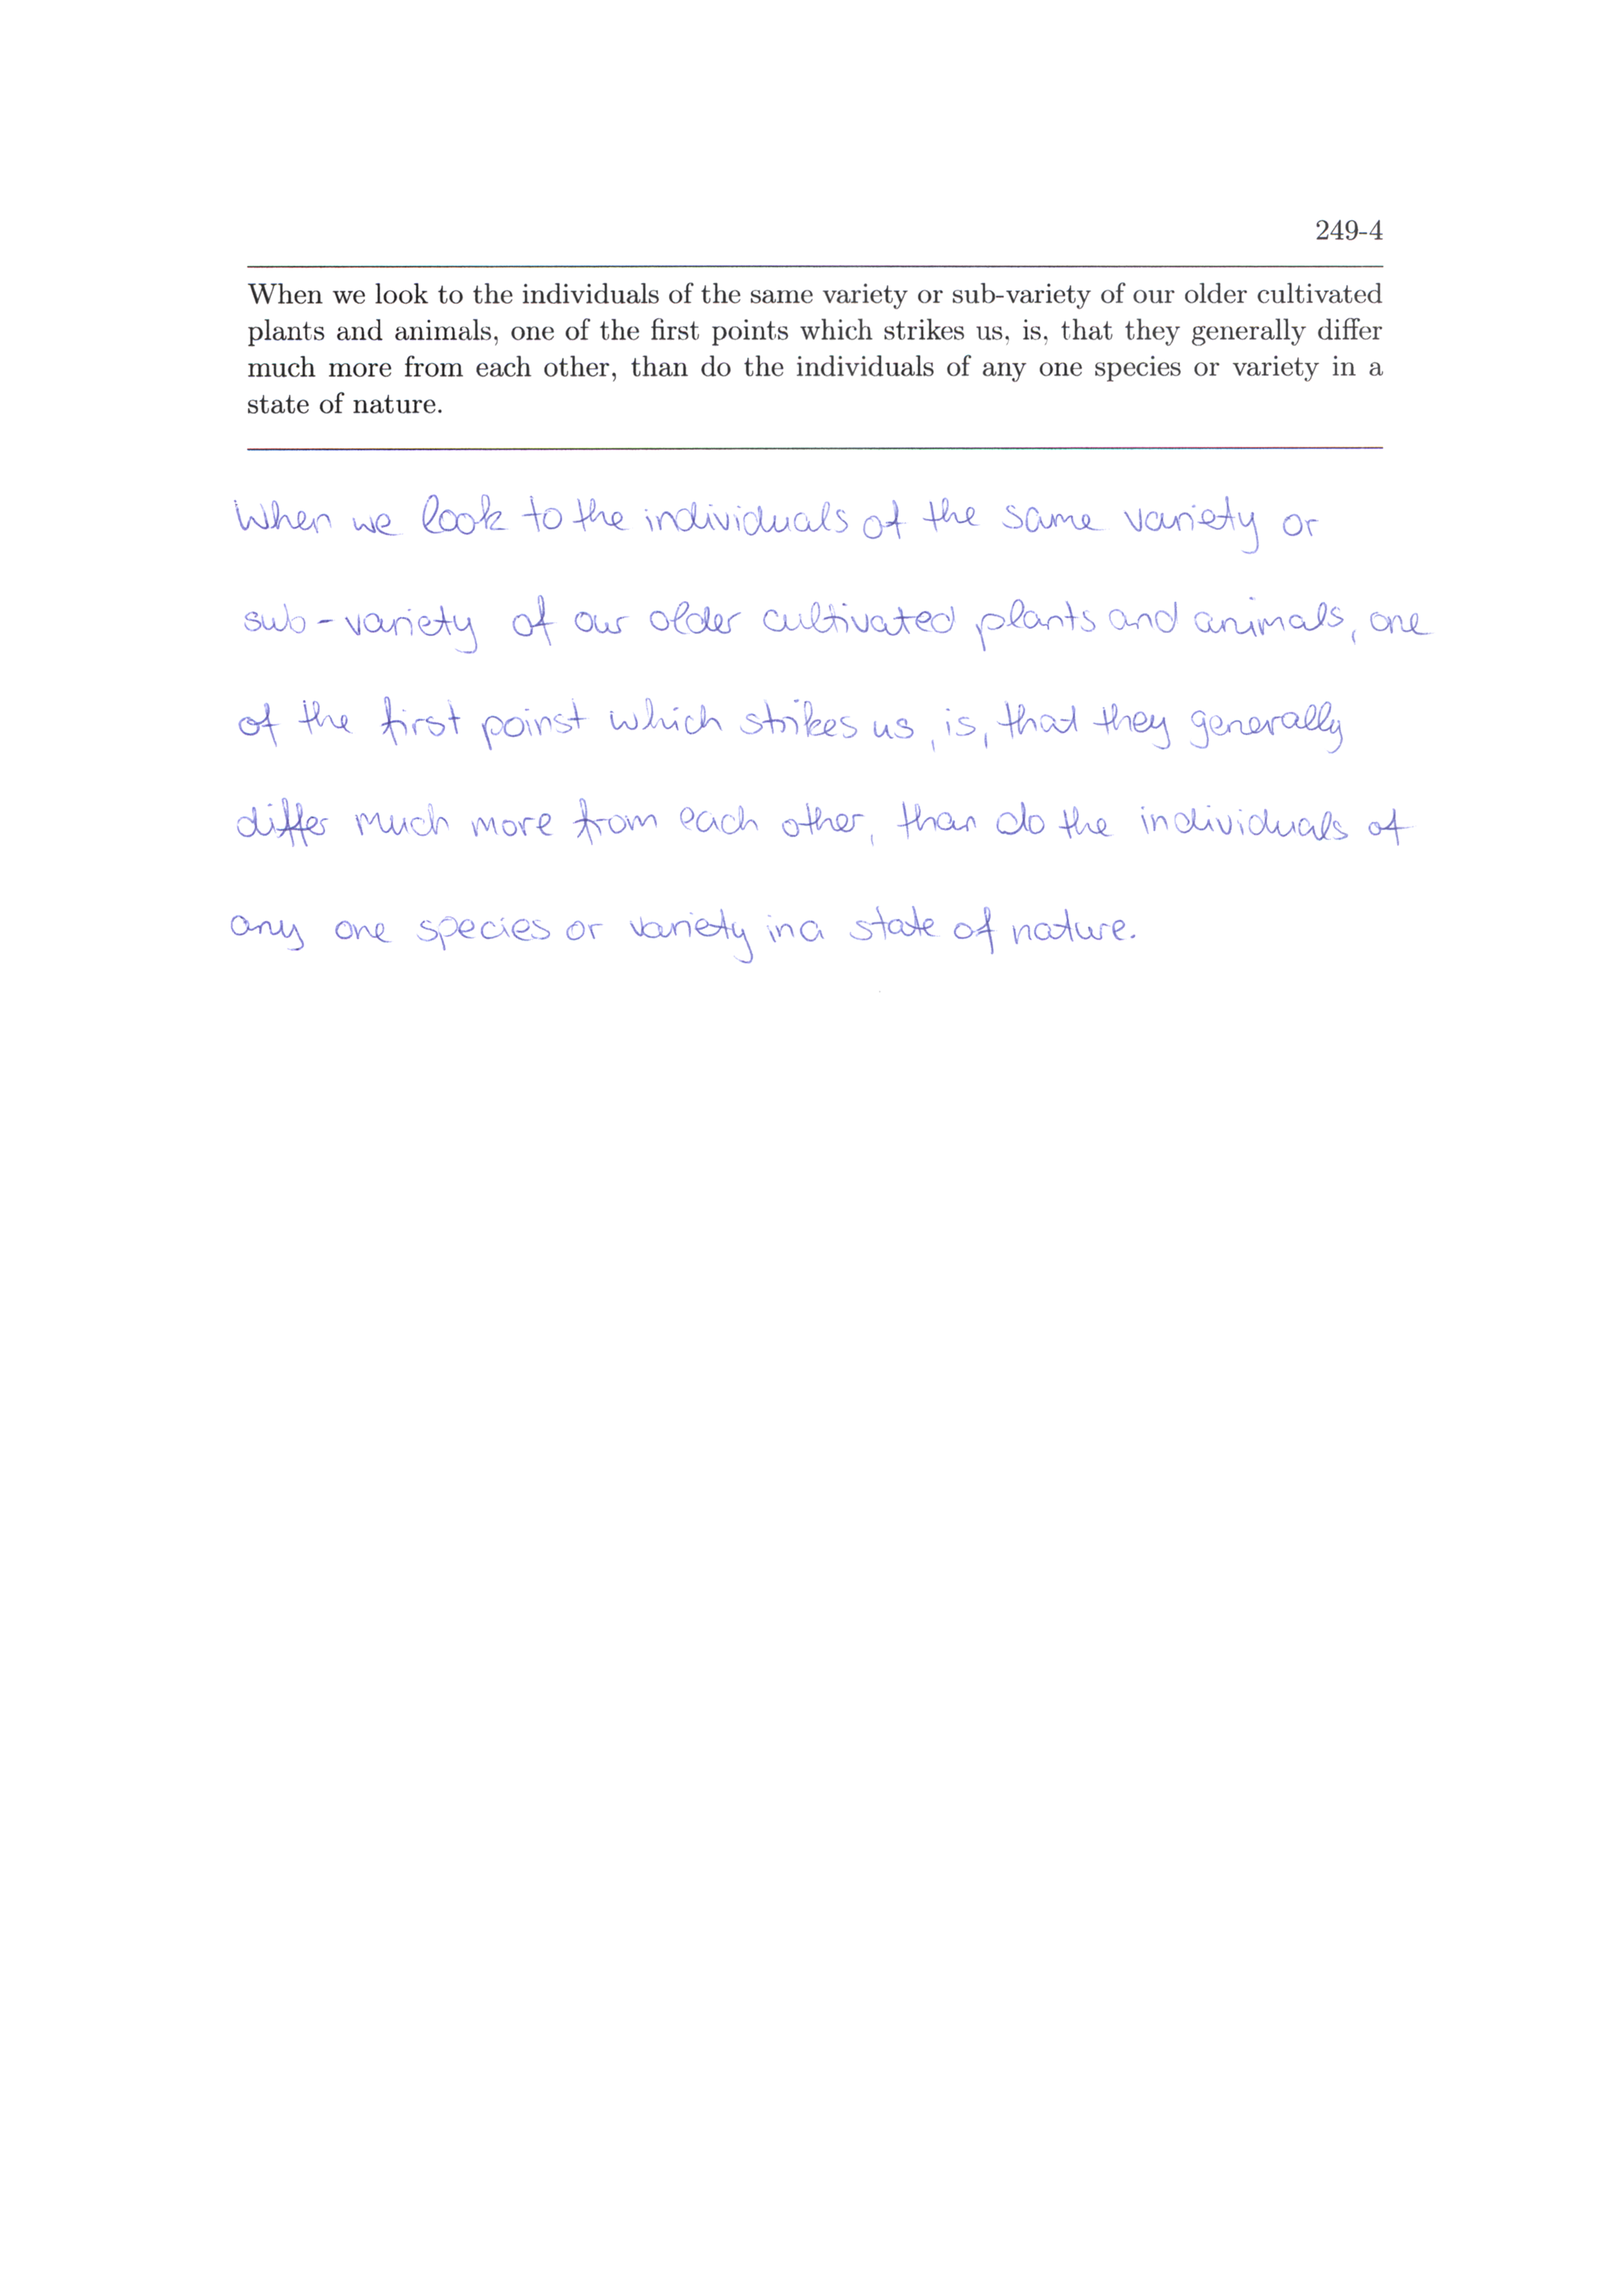 249-4
When we look to the individuals of the same variety or sub-variety of our older cultivated
plants and animals, one of the first points which strikes us, is, that they generally differ
much more from each other, than do the individuals of any one species or variety in a
state of nature.
When we look to the individuals of the same variety or
sub-variety of our older cultivated plants and animals, one
of the first poinst which strikes us, is, that they generally
differ much more from each other, than do the individuals of
any one species or variety in a state of nature.